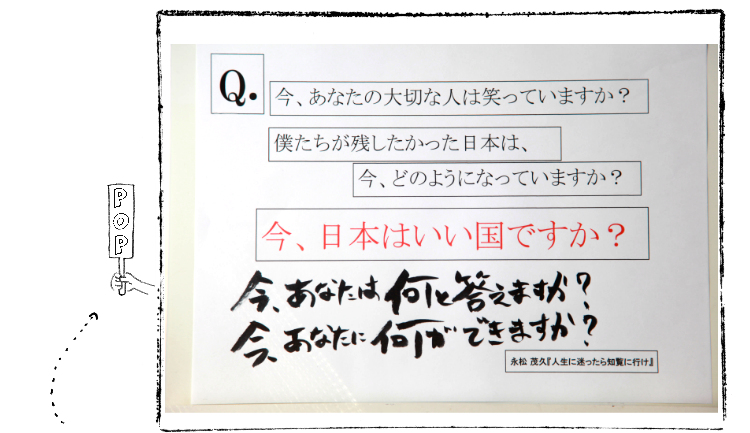 Q.
今、あなたの大切な人は笑っていますか？
僕たちが残したかった日本は、
今、どのようになっていますか？
今、日本はいい国ですか？
今、あなたは何と答えますか？
今、あなたに何ができますか？
永松 茂久『人生に迷ったら知覧に行け』
POP